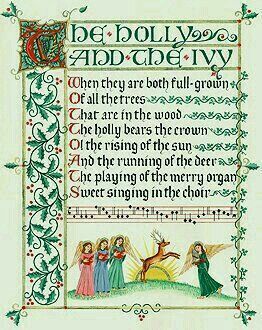 THE HOLLY
AND THE IVY
When they are both full-grown
Of all the trees
That are in the wood
The holly bears the crown
O! the rising of the sun
And the running of the deer
The playing of the merry organ
Sweet singing in the choir